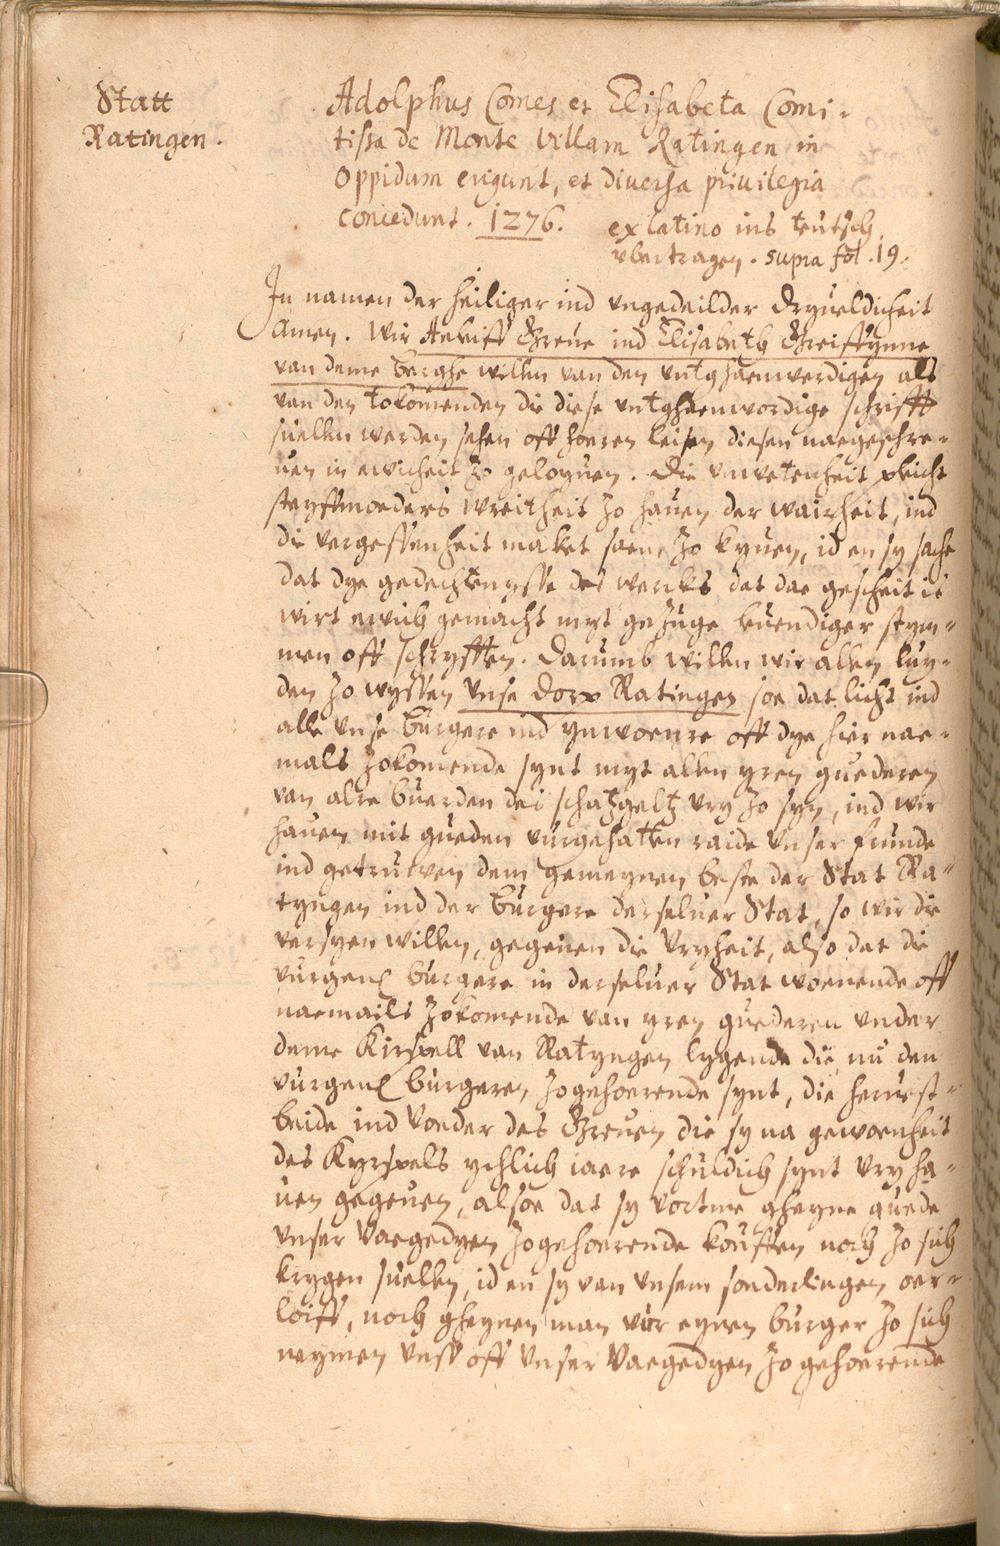 Statt
Ratingen.
Adolphus Comes et Elisabeta Comi-
tissa de Monte Villam Ratingen in
Oppidum erigunt, et diuersa priuilegia
concedunt. 1276. ex latino ins teutsch
vbertragen. supra fol. 19.
In namen der heiliger ind ungedeilder Dryueldicheit
Amen. Wir Aeliff Greue ind Elisabeth Greiffynne
van deme Berghe willen van den untghaenwerdigen als
van den tokomenden die diese untghaenwordige schrifft
suellen werden sehen off hoeren leisen diesen naegeschre-
uen in ewicheit zo geloyuen. Die unwetenheit pleicht
steyffmoeders wreitheit zo hauen der wairheit, ind
die vergessenheit maket saene zo kyuen, id en sy sache
dat dye gedechtenysse des wercks dat dae gescheit is
wirt ewich gemacht myt gezuge leuendiger stym-
men off schryfften. Darumb willen wir allen luy-
den zo wyssen unse dorp Ratingen soe dat licht ind
alle unse burgere ind ynwoenre off dye hier nae-
mals zokomende synt myt allen yren guederen
van alre buerden des schatzgeltz vry zo syn, ind wir
hauen mit gueden vurgehatten raide unser frunde
ind getruwen dem gemeynen beste der Stat Ra-
tyngen ind der burgere derseluer Stat, so wir die
versyen willen, gegeuen die vryheit, also dat die
vurgen. burgere in derseluer Stat woenende off
naemails zokomende van yren guederen under
deme Kirspell van Ratyngen lygende die nu den
vurgen. burgeren zogehoerende synt, die heruest-
beide ind voeder des Greuen die sy na gewoenheit
des Kyrspels ychlich iaere schuldich synt vry ha-
uen gegeuen, alsoe dat sy vortme gheyne guede
unser Vaegedyen zogehoerende kouffen noch zo sich
krygen suellen, id en sy van unsem sonderlingen oer-
loiff, noch gheynen man vur eynen burger zo sich
neymen unss off unser Vaegedyen zo gehoerende